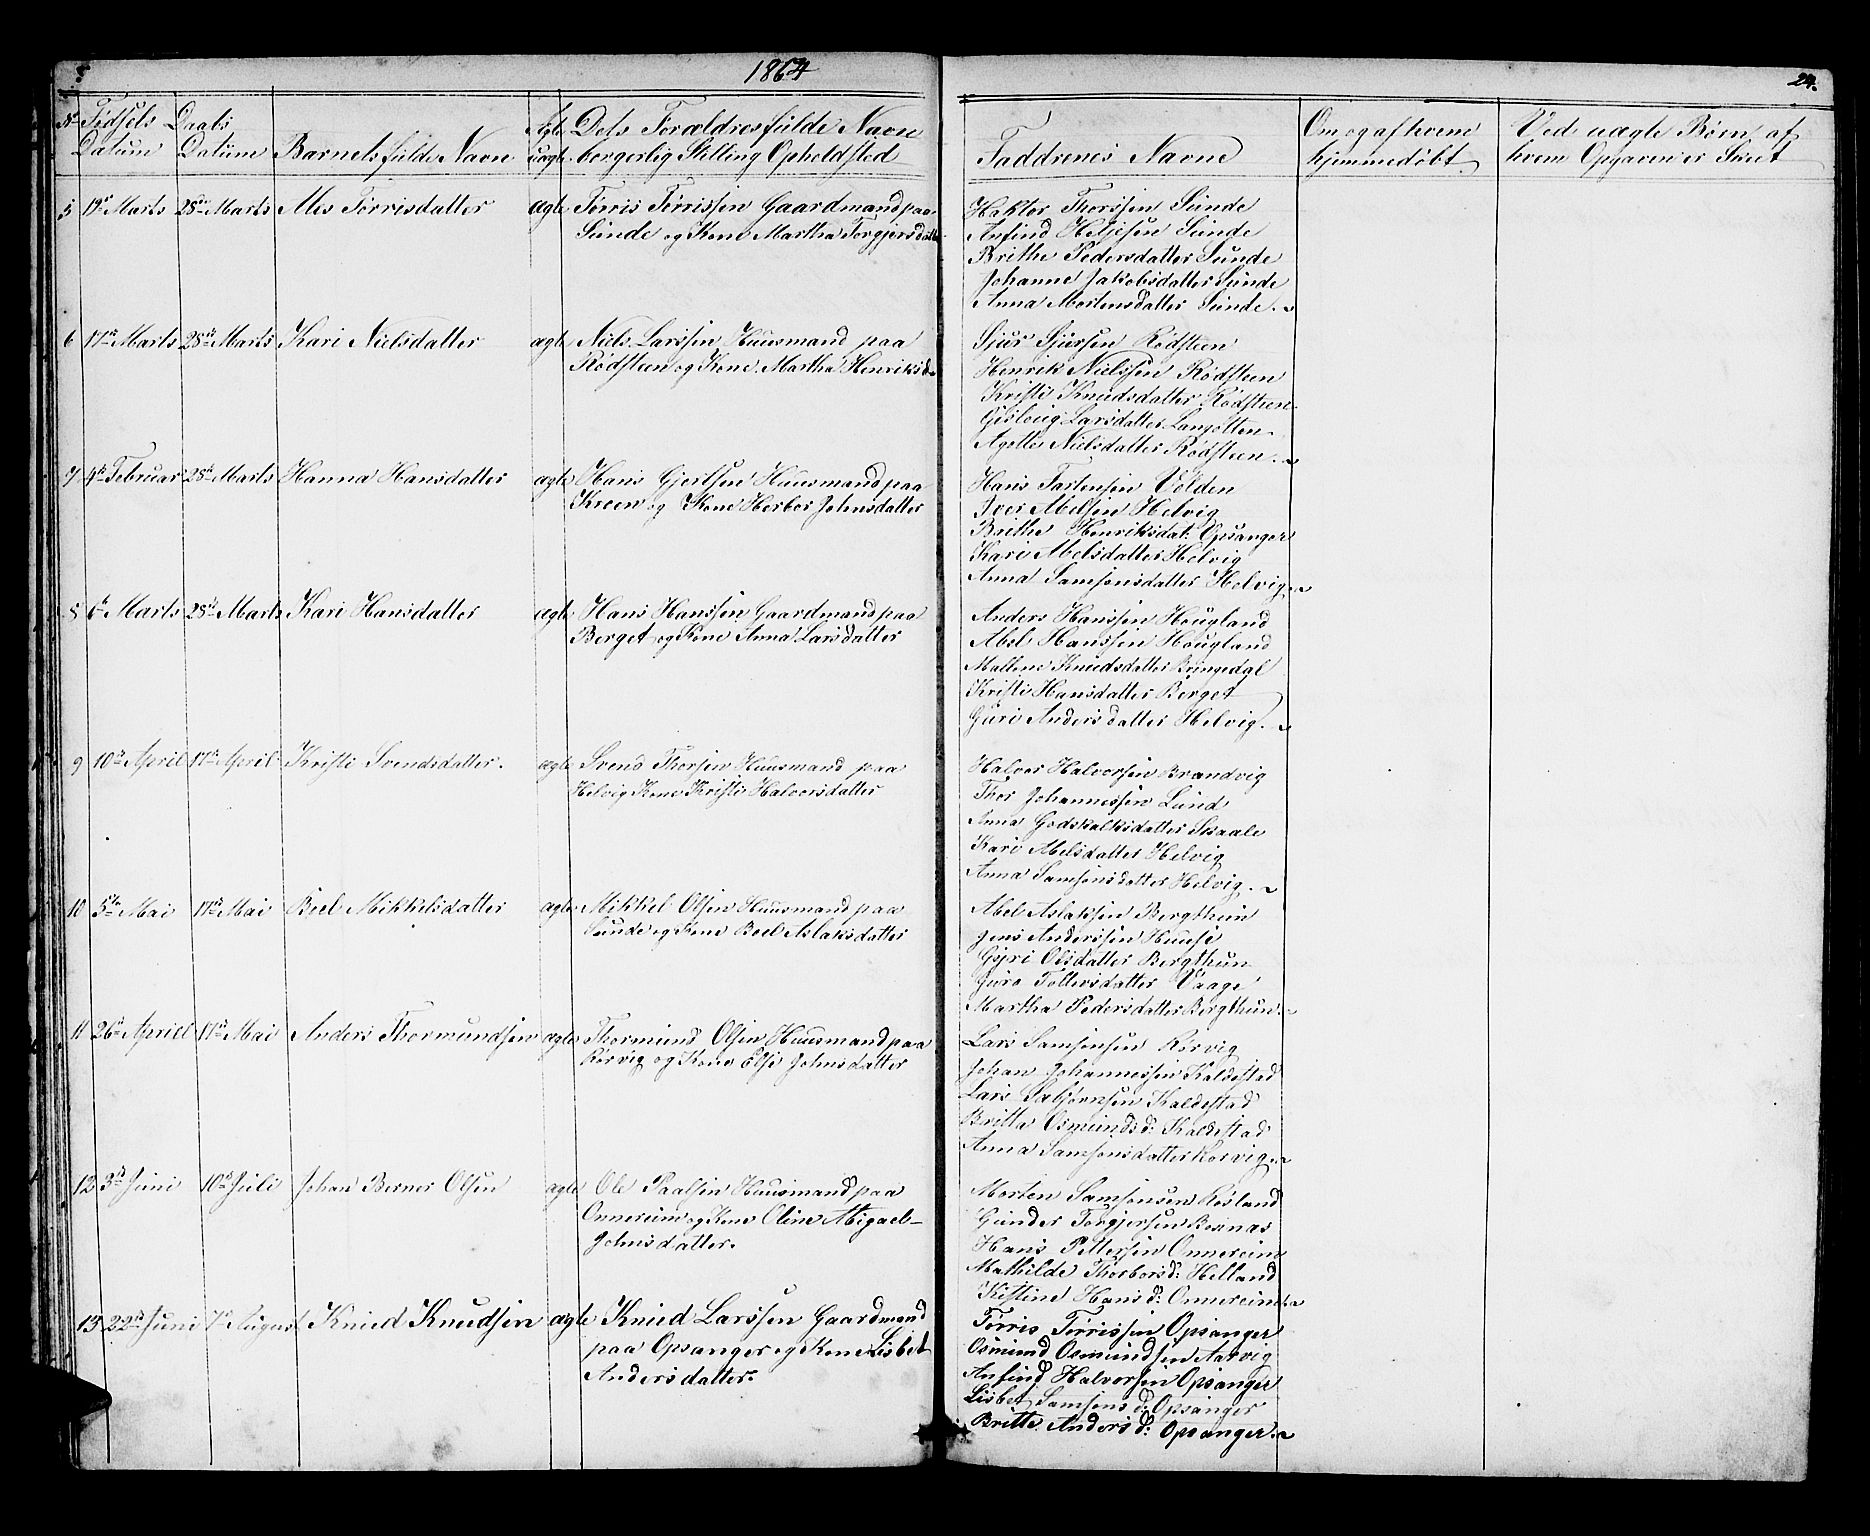 1864
24.
No Fødsels Daabs Ægte Dets Forældres fulde Navn
Datum Datum Barnets fulde Navn uægte borgerlig Stilling Opholdsted
Faddrenes Navne
Om og af hvem
hjemmedøbt
Ved uægte Børn af
hvem Opgaven er Skeet
5 19de Marts 28de Marts Tørrisdatter ægte Tørris Tørrissen Gaardmand paa
Sunde og Kone Martha Torgjersdatter
Haktor Thorssen Sunde
Anfind Heljesen Sunde
Brithe Pedersdatter Sunde
Johanne Jakobsdatter Sunde
Anna Mortensdatter Sunde.
6 17de Marts 28de Marts Kari Nielsdatter ægte Niels Larssen Huusmand paa
Rødsteen og Kone Martha Henriksd.
Sjur Sjurssen Rødsteen
Henrik Nielssen Rødsteen
Kristi Knudsdatter Rødsteen
Gisloug Larsdatter
Agotte Nielsdatter Rødsteen.
7 4de Februar 28de Marts Hanna Hansdatter ægte Hans Gjertsen Huusmand paa
Kroen og Kone Herbor Johnsdatter
Hans Tostensen Volden
Iver Abelsen Helvig
Brithe Henriksdat: Opsanger
Kari Abelsdatter Helvig
Anna Samsonsdatter Helvig.
8 6te Marts 28de Marts Kari Hansdatter ægte Hans Hanssen Gaardmand paa
Berget og Kone Anna Larsdatter
Anders Hanssen Hougland
Abel Hanssen Hougland
Mallene Knudsdatter Bringedal
Kristi Hansdatter Berget
Guri Andersdatter Helvig.
9 10de April 17de April Kristi Svendsdatter. ægte Svend Thorsen Huusmand paa
Helvig Kone Kristi Halvorsdatter
Halvor Halvorsen Brandvig
Thor Johannessen Lund
Anna Godskalksdatter Skaale
Kari Abelsdatter Helvig
Anna Samsonsdatter Helvig.
10 5te Mai 17de Mai Beel Mikkelsdatter ægte Mikkel Olsen Huusmand paa
Sunde og Kone Beel Aslaksdatter
Abel Aslaksen Bergthun
Jens Anderssen Huuse
Gyri Olsdatter Bergthun
Guro Tollersdatter Vaage
Martha Pedersdatter Bergthun.
11 26de Aprill 17de Mai Anders Thormundsen ægte Thormund Olsen Huusmand paa
Rørvig og Kone Else Johnsdatter
Lars Samsonsen Rørvig
Johan Johannessen Kaldestad
Lars Kaldestad
Britta Osmunds d: Kaldestad
Anna Samsonsdatter Rørvig.
12 3de Juni 10de Juli Johan Berner Olsen ægte Ole Paalsen Huusmand paa
Onnereim og Kone Oline Abigael
Johnsdatter.
Morten Samsonsen Røsland
Gunder Torgjersen Rosnæs
Hans Pettersen Onnereim
Mathilde Thorbors d: Helland
Kistine Hans d: Onnereim.
13 22de Juni 7de August Knud Knudsen ægte Knud Larssen Gaardmand
paa Opsanger og Kone Lisbet
Andersdatter.
Tørris Tørrissen Opsanger
Osmund Osmundsen Aarvig
Anfind Halvorsen Opsanger
Lisbet Samsons d: Opsanger
Britte Anders d: Opsanger.